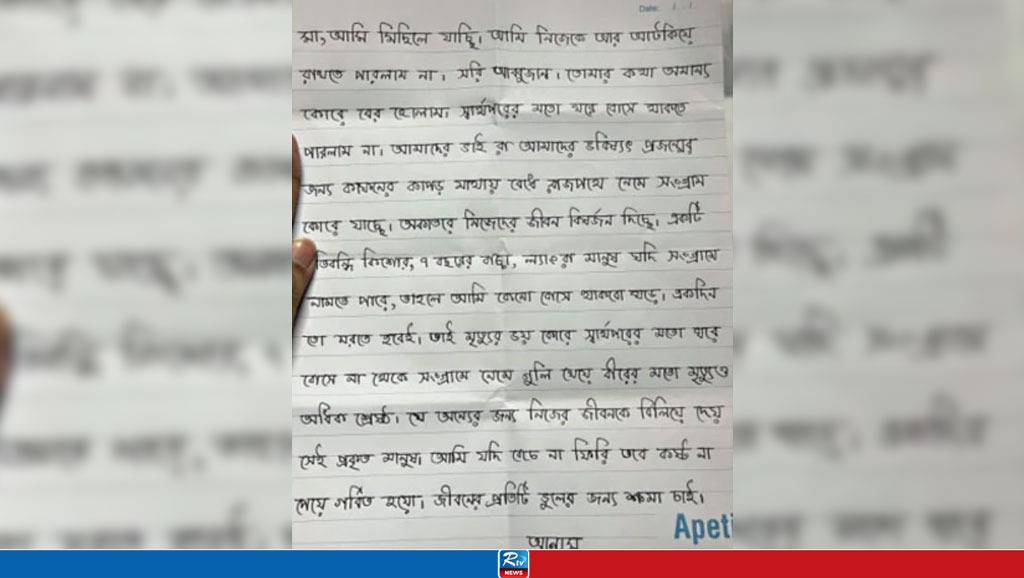 Date: / /
মা, আমি মিছিলে যাচ্ছি। আমি নিজেকে আর আটকিয়ে
রাখতে পারলাম না। সরি আব্বুজান। তোমার কথা অমান্য
কোরে বের হোলাম। স্বার্থপরের মতো ঘরে বোসে থাকতে
পারলাম না। আমাদের ভাই রা আমাদের ভবিষ্যৎ প্রজন্মের
জন্য কাফনের কাপড় মাথায় বেধে রাজপথে নেমে সংগ্রাম
কোরে যাচ্ছে। অকাতরে নিজেদের জীবন বিষর্জন দিচ্ছে। একটি
তিবন্ধি কিশোর, ৭ বছরের বাচ্চা, ল্যাংরা মানুষ যদি সংগ্রামে
নামতে পারে, তাহলে আমি কেনো বোসে থাকবো ঘড়ে। একদিন
তো মরতে হবেই। তাই মৃত্যুর ভয় কোরে স্বার্থপরের মতো ঘরে
বোসে না থেকে সংগ্রামে নেমে গুলি খেয়ে বীরের মতো মৃত্যুও
অধিক শ্রেষ্ঠ। যে অন্যের জন্য নিজের জীবনকে বিলিয়ে দেয়
সেই প্রকৃত মানুষ। আমি যদি বেচে না ফিরি তবে কষ্ট না
পেয়ে গর্বিত হয়ো। জীবনের প্রতিটি ভুলের জন্য ক্ষমা চাই।
আনাস
Apeti
Rtv
NEWS